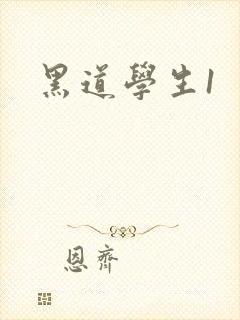 黑道學生1
恩齊